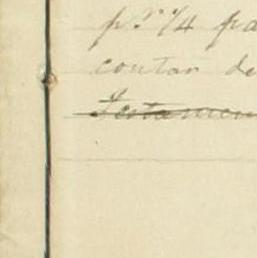 p.r 1/4 pa
contar de
Testamen